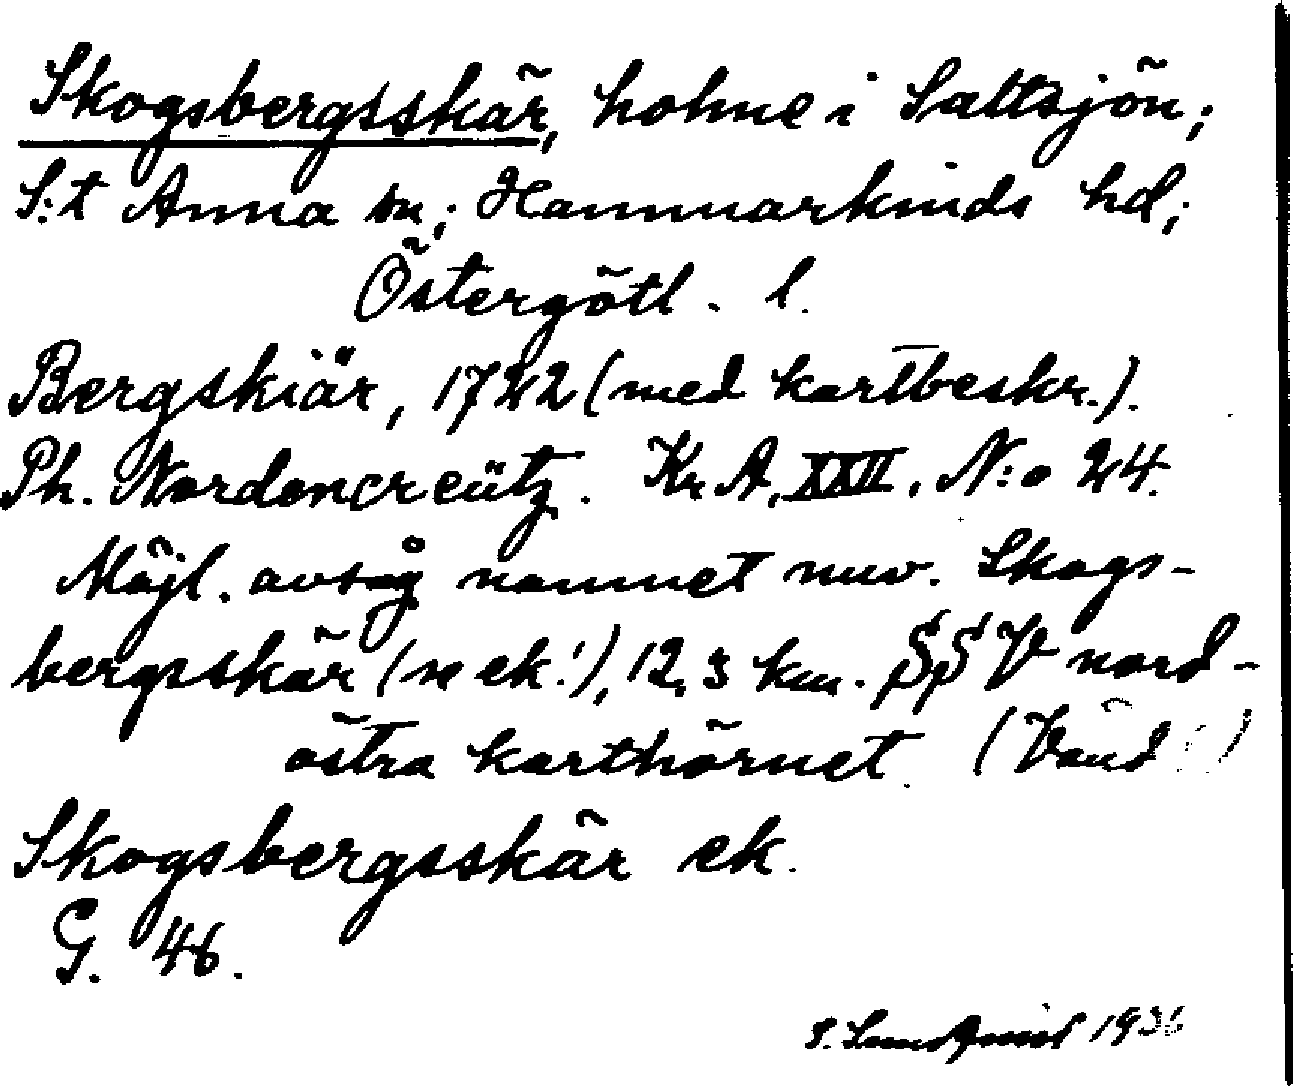 Skogsbergsskär, holme i Saltsjön;
S:t Anna sn; Hammarkinds hd;
Östergötl. l.
Bergskiär, 1722 (med kartbeskr.).
Ph. Nordencreütz. Kr. A, XXII, N:o 24.
Möjl. avsåg namnet nuv. Skogs-
bergsskär (se ek.!), 12,3 km. SSV nord-
östra karthörnet. (Vänd!)
Skogsbergsskär ek.
G. 46.
S. 1936